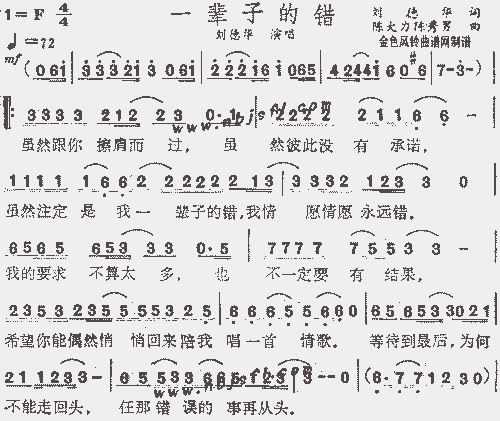 1=F 4/4 一辈子的错 刘德华 词
刘德华 演唱 陈大力 陈秀男 曲
♩=72 金色风铃曲谱网制谱
mf (0 6 1 | 3 3 3 2 1 3 0 6 1 | 2 2 2 1 6 1 0 6 5 | 4 2 4 4 1 6 0 #6 | 7 - 3 -)
3 3 3 3 2 1 2 2 3 0·1 | 2 2 2 2 2 1 1 6 6 -
虽然跟你 擦肩而 过， 虽 然彼此没 有 承诺，
www.nbjsfl.com
1 1 1 1 1 6 6 2 2 2 2 2 2 1 3 | 3 3 3 2 1 2 3 3 0
虽然注定 是 我一 辈子的错,我情 愿情愿 永远错。
6 5 6 5 6 5 3 3 3 0·5 | 7 7 7 7 7 5 5 3 3 -
我的要求 不算太 多， 也 不一定要 有 结果，
2 3 5 3 2 3 5 5 5 5 3 2 5 | 6 6 6 5 5 6 6 0 | 6 5 6 5 3 3 0 2 1
希望你能偶然悄 悄回来陪我 唱一首 情歌。 等待到最后,为何
2 1 1 2 3 3 - | 6 5 5 3 3 | 3 - - 0 | (6·7 6 7 1 2 3 0)
不能走回头， 任那 错 误的 事再从头。